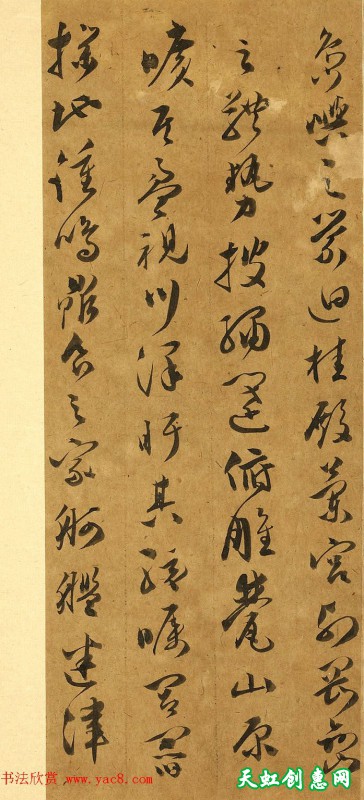 島嶼之縈迴桂殿蘭宮列罡巒
之體勢披繡闥俯雕甍山原
曠其盈視川澤盱其駭矚閭閻
撲地鍾鳴鼎食之家舸艦迷津
书法欣赏 www.yac8.com
天虹创意网